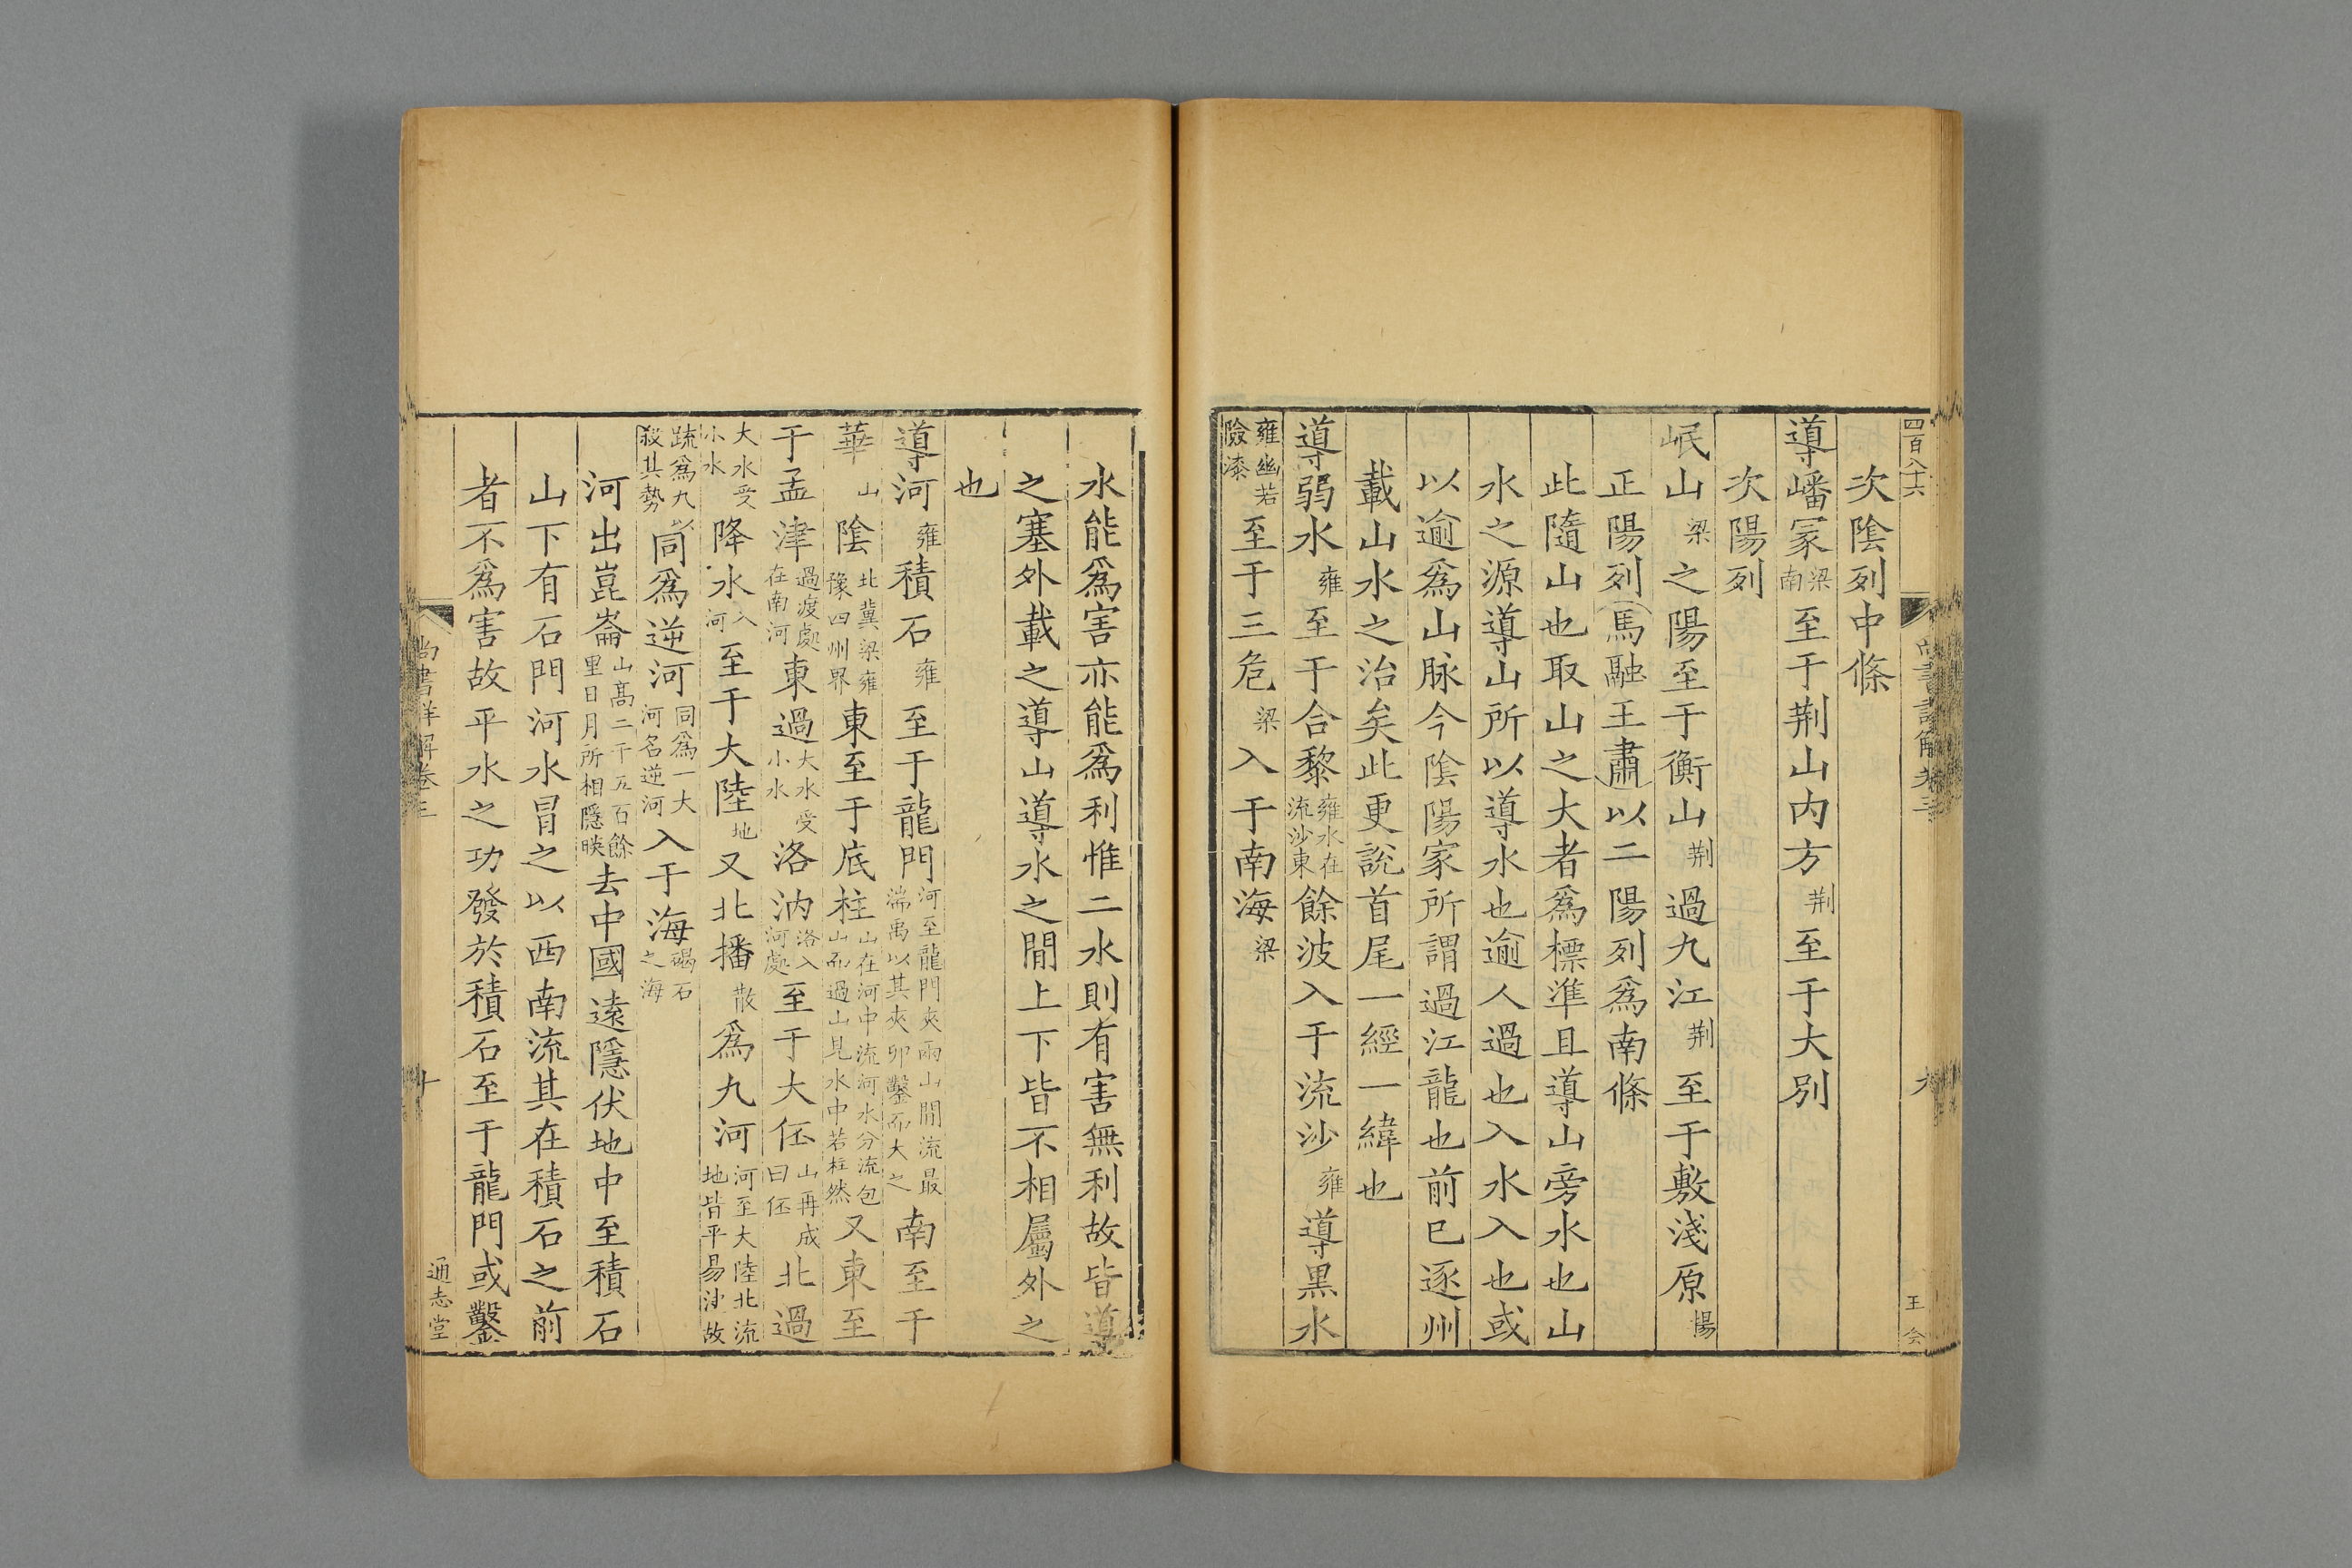 四百八十六
尚書詳解卷三
九
王公
次陰列中條
導嶓冡梁南至于荆山内方荆至于大別
次陽列
岷山梁之陽至于衡山荆過九江荆至于敷淺原楊
正陽列馬融王肅以二陽列爲南條
此隨山也取山之大者爲標準且導山旁水也山
水之源導山所以導水也逾人過也入水入也或
以逾爲山脉今陰陽家所謂過江龍也前巳逐州
載山水之治矣此更說首尾一經一緯也
導弱水雍至于合黎雍水在流沙東餘波入于流沙雍導黒水
雍幽若險漆至于三危梁入于南海梁
水能爲害亦能爲利惟二水則有害無利故皆導
之塞外載之導山導水之間上下皆不相屬外之
也
導河雍積石雍至于龍門河至龍門夾兩山間流最湍禹以其夾卯鑿而大之南至于
華山陰北冀梁雍豫四州界東至于底柱山在河中流河水分流包山而過山見水中若柱然又東至
于孟津過渡處在南河東過大水受小水洛汭洛入河處至于大伾山再成曰伾北過
大水受小水降水入河至于大陸地又北播散爲九河河至大陸北流地皆平易沙故
疏爲九以殺其勢同爲逆河同爲一大河名逆河入于海碣石之海
河出崑崙山高二千五百餘里日月所相隱映去中國遠隱伏地中至積石
山下有石門河水冒之以西南流其在積石之前
者不爲害故平水之功發於積石至于龍門或鑿
尚書詳解卷三
十
通志堂